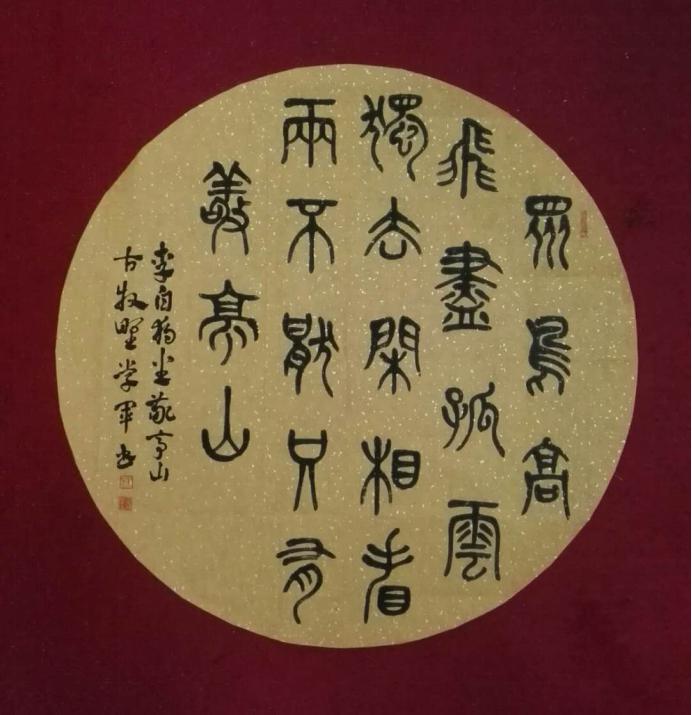 眾鳥高
飛盡孤雲
獨去閑相看
兩不厭只有
敬亭山
李白獨坐敬亭山
古牧野学軍书